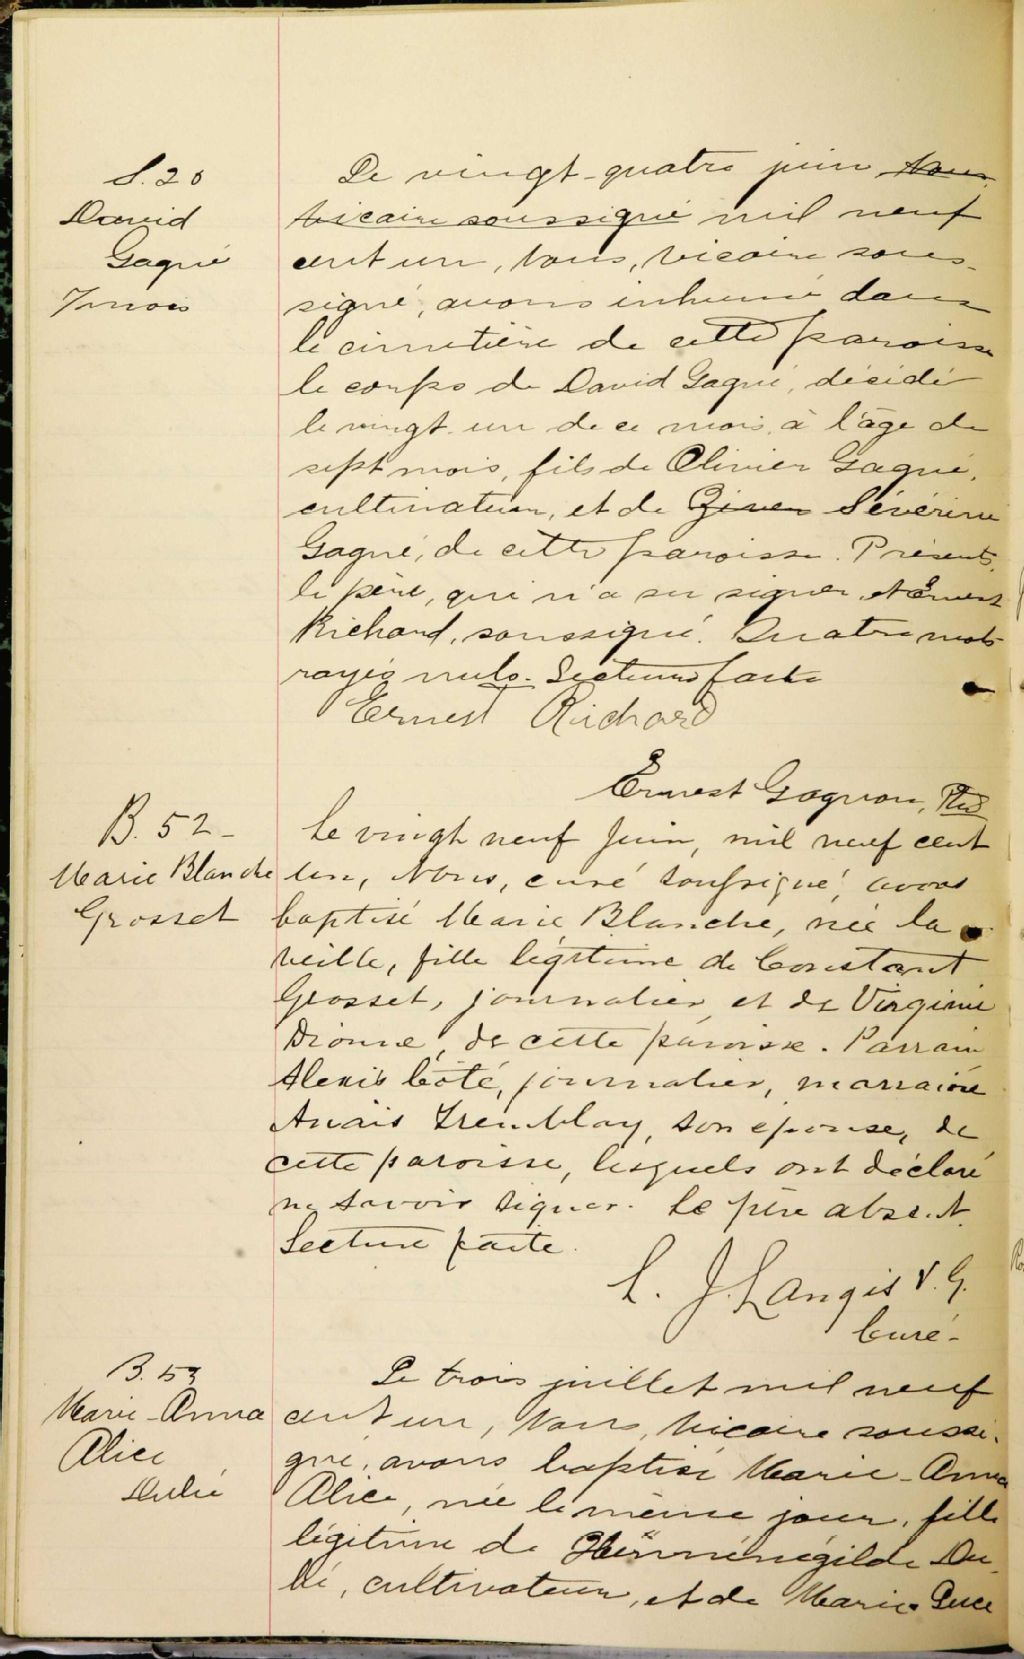 S. 20
David
Gagné
7 mois
Le vingt-quatre juin Nous,
vicaire soussigné mil neuf
cent un, Nous, vicaire sous-
signé, avons inhumé dans
le cimetière de cette paroisse
le corps de David Gagné, décédé
le vingt-un de ce mois, à l'âge de
sept mois, fils de Olivier Gagné,
cultivateur, et de Séverine
Gagné, de cette paroisse. Présents,
le père, qui n'a su signer, et Ernest
Richard, soussigné. Quatre mots
rayés nuls. Lecture faite
Ernest Richard
Ernest Gagnon, Ptre
B. 52-
Marie Blanche
Grosset
Le vingt neuf Juin, mil neuf cent
un, Nous, curé soussigné, avons
baptisé Marie Blanche, née la
veille, fille légitime de Constant
Grosset, journalier et de Virginie
Dionne, de cette paroisse. Parrain
Alexis Côté, journalier, marraine
Anaïs Tremblay, son épouse, de
cette paroisse, lesquels ont déclaré
ne savoir signer. Le père absent.
Lecture faite.
L. J. Langis V. G.
Curé-
B. 53
Marie-Anna
Alice
Dubé
Le trois juillet mil neuf
cent un, Nous, vicaire soussi-
gné, avons baptisé Marie-Anna
Alice, née le même jour, fille
légitime de Herménégilde Du-
bé, cultivateur, et de Marie Luce